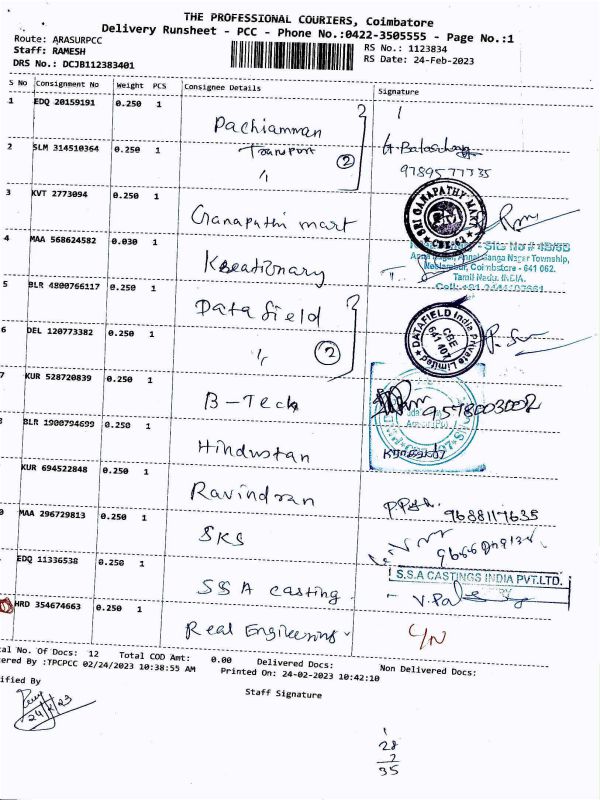 THE PROFESSIONAL COURIERS, Coimbatore
Delivery Runsheet - PCC - Phone No.:0422-3505555 - Page No.:1
Route: ARASURPCC
Staff: RAMESH
RS No.: 1123834
DRS No.: DCJB112383401
RS Date: 24-Feb-2023
S No Consignment No Weight PCS Consignee Details Signature
1 EDQ 20159191 0.250 1 Pachiamman
2 SLM 314510364 0.250 1 Transport (2)
9789577735
3 KVT 2773094 0.250 1 Ganapathi mart
SRI GANAPATHY MART
CBE-62
4 MAA 568624582 0.030 1 Kreationary
Nagar Township,
Coimbatore - 641 062.
Tamil Nadu, INDIA.
5 BLR 4800766117 0.250 1 Data field
6 DEL 120773382 0.250 1 (2)
DATAFIELD India Private Limited
CBE
641 407
7 KUR 528720839 0.250 1 B-Tech
9578003002
BLR 1900794699 0.250 1 Hindustan
KUR 694522848 0.250 1 Ravindran
9688117635
MAA 296729813 0.250 1 SKS
EDQ 11336538 0.250 1 SSA casting
S.S.A CASTINGS INDIA PVT.LTD.
HRD 354674663 0.250 1 Real Engineering
C/N
al No. Of Docs: 12 Total COD Amt: 0.00 Delivered Docs: Non Delivered Docs:
ered By :TPCPCC 02/24/2023 10:38:55 AM Printed On: 24-02-2023 10:42:10
ified By
Staff Signature
28
7
35